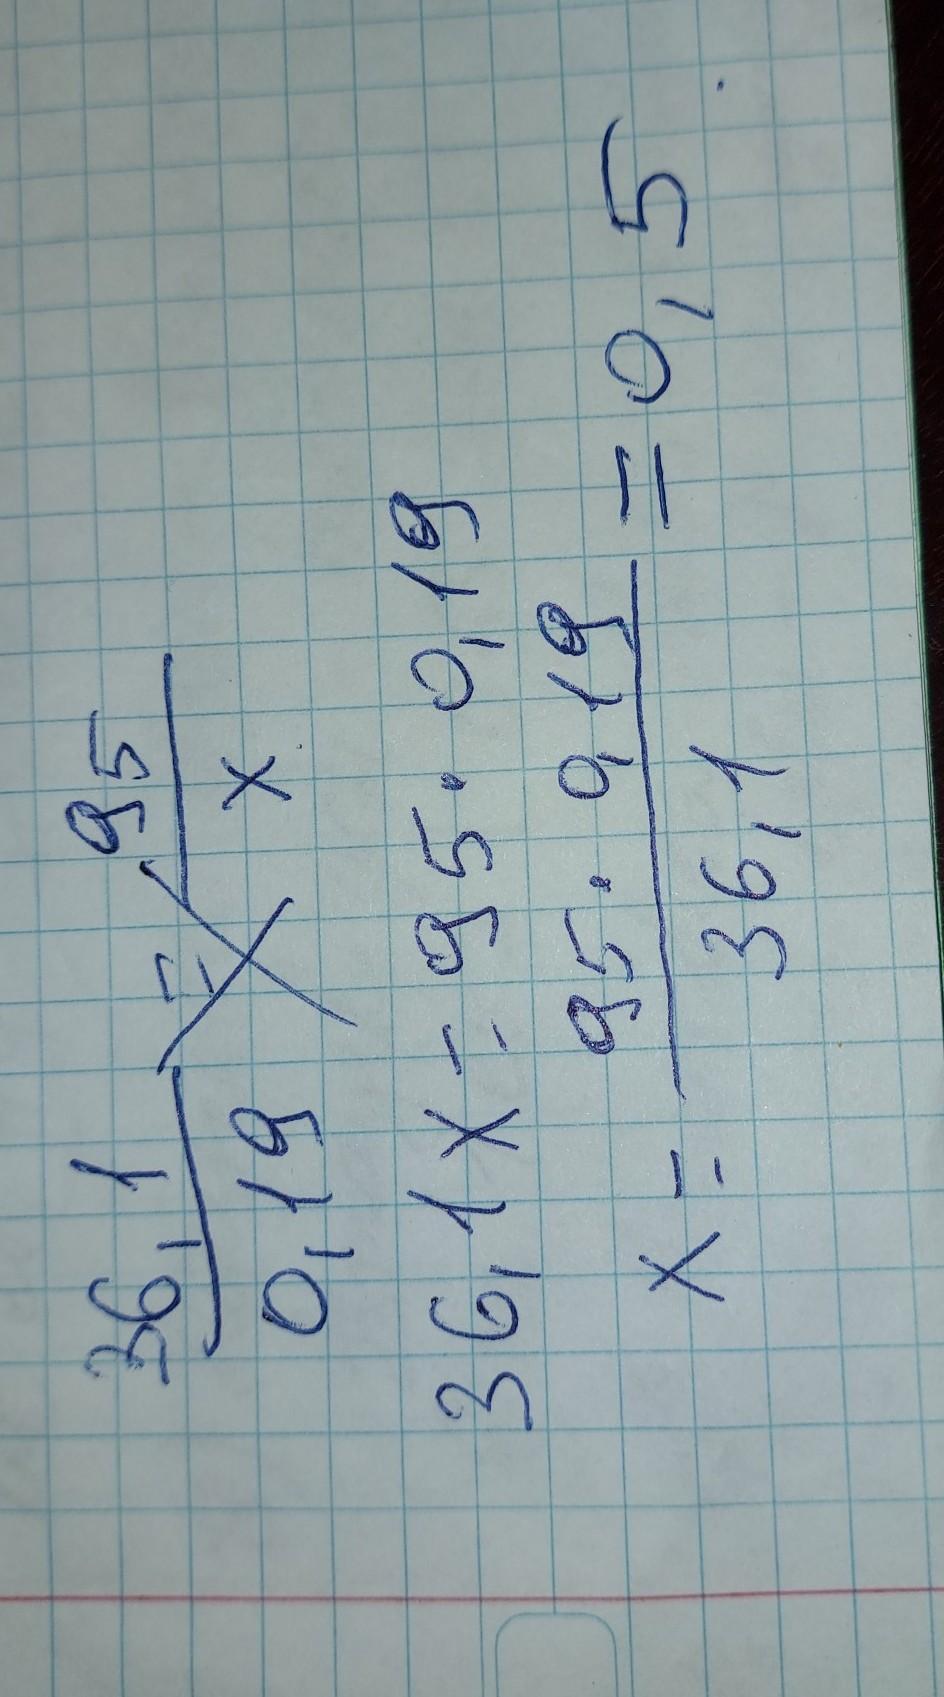 36,1 / 0,19 = 95 / x
36,1 x = 95 · 0,19
x = 95 · 0,19 / 36,1 = 0,5